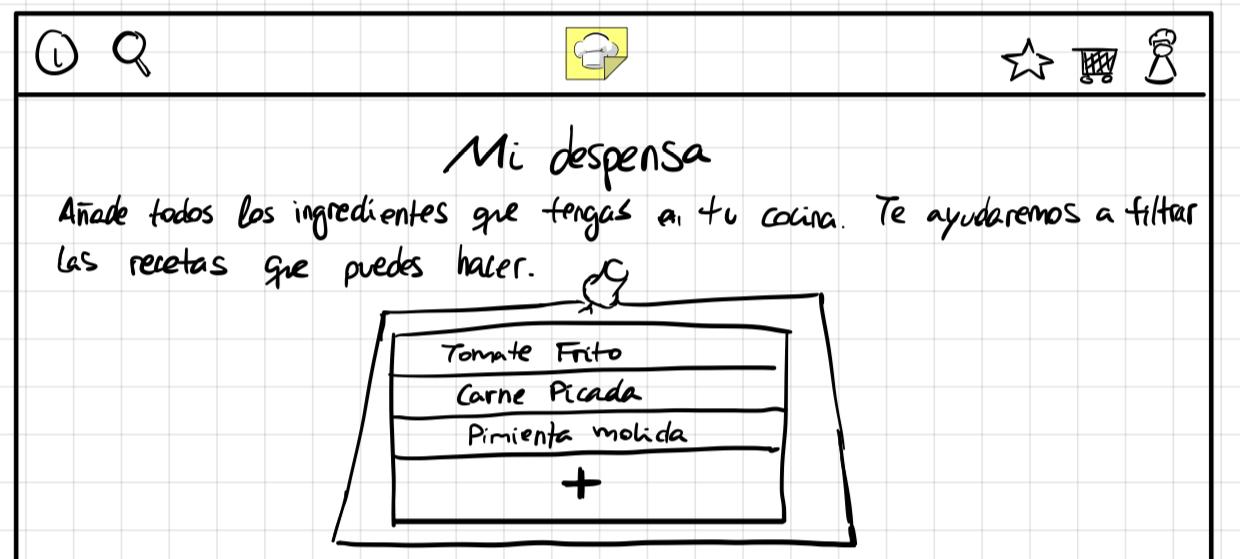 Mi despensa
Añade todos los ingredientes que tengas en tu cocina. Te ayudaremos a filtrar
las recetas que puedes hacer.
Tomate Frito
Carne Picada
Pimienta molida
+